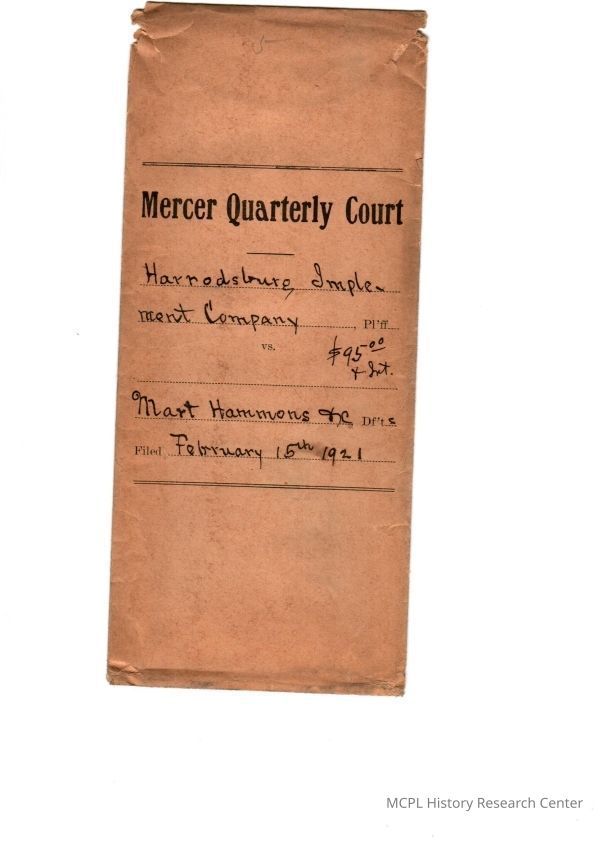 5
Mercer Quarterly Court
Harrodsburg Imple-
ment Company Pl'ff.
vs. $95.00
+ Int.
Mart Hammons &C Df'ts
Filed February 15th 1921
MCPL History Research Center